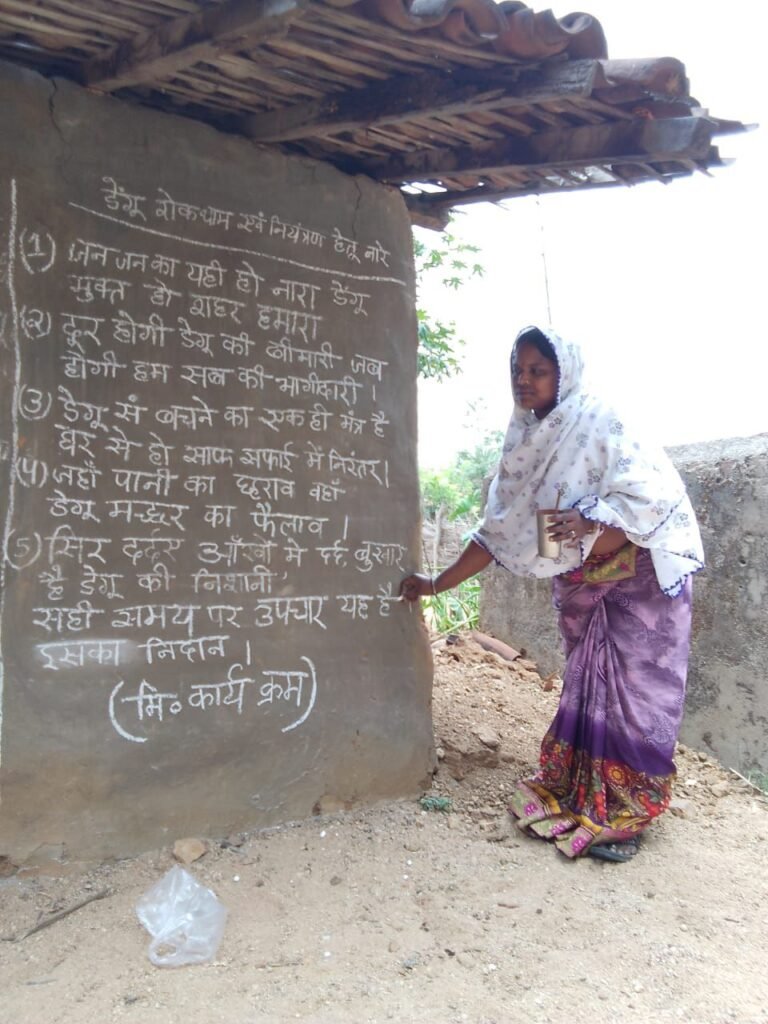 डेंगू रोकथाम एवं नियंत्रण हेतू नारे
(1) जन जन का यही हो नारा डेंगू
मुक्त हो शहर हमारा
(2) दूर होगी डेगू की बीमारी जब
होगी हम सब की भागीदारी ।
(3) डेगू सं बचने का एक ही मंत्र है
घर से हो साफ सफाई में निरंतर।
(4) जहाँ पानी का ठहराव वहाँ
डेगू मच्छर का फैलाव ।
(5) सिर दर्दर आँखो मे दर्द, बुखार
है डेगू की निशानी
सही समय पर उपचार यह है
इसका निदान ।
(मि॰ कार्य क्रम)